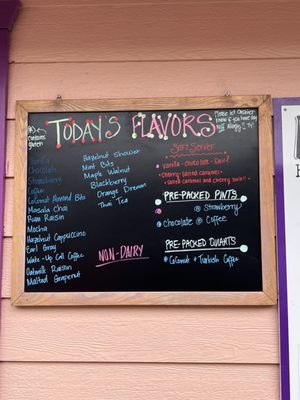 (*) contains gluten
TODAY'S FLAVORS
Please let Cashier Know if you have any Nut Allergy
Vanilla
Chocolate
Strawberry
Coffee
Coconut Almond Bits
Masala Chai
Rum Raisin
Mocha
Hazelnut Cappuccino
Earl Gray
Wake-Up Call Coffee
Oatmilk Raisin
Malted Grapenut
Hazelnut Shower
Mint Bits
Maple Walnut
Blackberry
Orange Dream
Thai Tea
NON-DAIRY
SOFT SERVE
Vanilla - Chocolate - Swirl
Cherry - Salted Caramel -
Salted Caramel and Cherry Swirl
PRE-PACKED PINTS
Strawberry
Chocolate Coffee
PRE-PACKED QUARTS
Coconut + Turkish Coffee